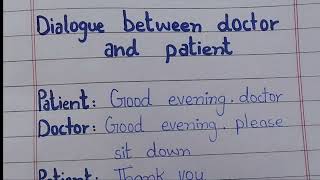 Dialogue between doctor
and patient
Patient: Good evening. doctor
Doctor: Good evening. please
sit down
Patient: Thank you